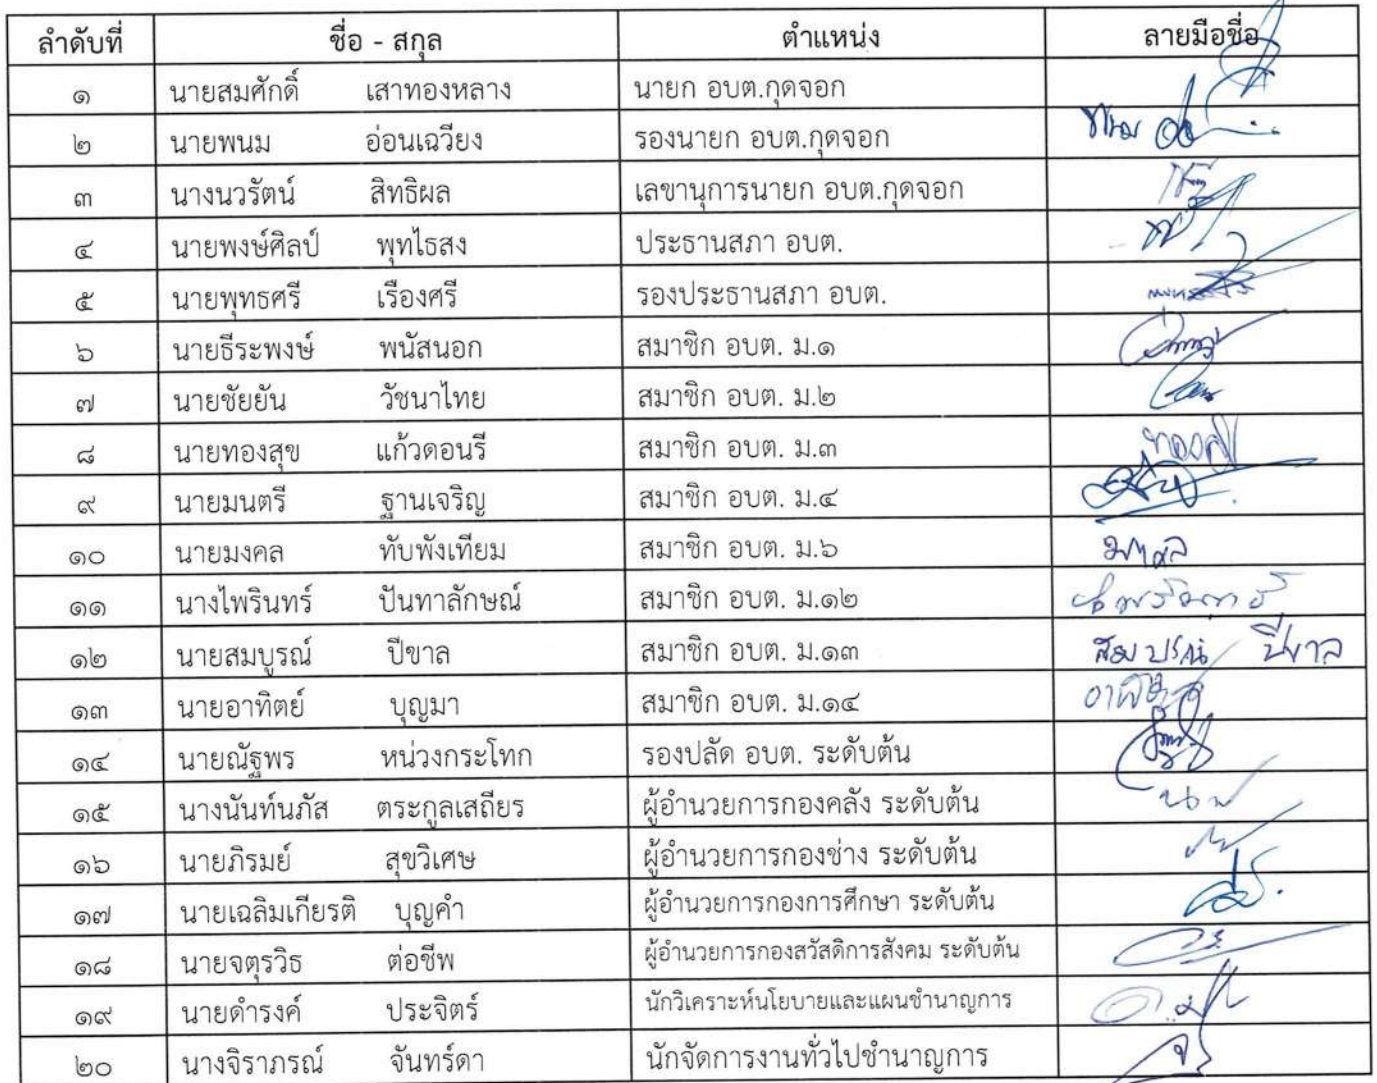 ลำดับที่ ชื่อ - สกุล ตำแหน่ง ลายมือชื่อ
๑ นายสมศักดิ์ เสาทองหลาง นายก อบต.กุดจอก
๒ นายพนม อ่อนเฉวียง รองนายก อบต.กุดจอก พนม
๓ นางนวรัตน์ สิทธิผล เลขานุการนายก อบต.กุดจอก
๔ นายพงษ์ศิลป์ พุทไธสง ประธานสภา อบต.
๕ นายพุทธศรี เรืองศรี รองประธานสภา อบต.
๖ นายธีระพงษ์ พนัสนอก สมาชิก อบต. ม.๑
๗ นายชัยยัน วัชนาไทย สมาชิก อบต. ม.๒
๘ นายทองสุข แก้วดอนรี สมาชิก อบต. ม.๓
๙ นายมนตรี ฐานเจริญ สมาชิก อบต. ม.๔
๑๐ นายมงคล ทับพังเทียม สมาชิก อบต. ม.๖ มงคล
๑๑ นางไพรินทร์ ปันทาลักษณ์ สมาชิก อบต. ม.๑๒
๑๒ นายสมบูรณ์ ปีขาล สมาชิก อบต. ม.๑๓ สมบูรณ์ ปีขาล
๑๓ นายอาทิตย์ บุญมา สมาชิก อบต. ม.๑๔
๑๔ นายณัฐพร หน่วงกระโทก รองปลัด อบต. ระดับต้น
๑๕ นางนันท์นภัส ตระกูลเสถียร ผู้อำนวยการกองคลัง ระดับต้น
๑๖ นายภิรมย์ สุขวิเศษ ผู้อำนวยการกองช่าง ระดับต้น
๑๗ นายเฉลิมเกียรติ บุญคำ ผู้อำนวยการกองการศึกษา ระดับต้น
๑๘ นายจตุรวิธ ต่อชีพ ผู้อำนวยการกองสวัสดิการสังคม ระดับต้น
๑๙ นายดำรงค์ ประจิตร์ นักวิเคราะห์นโยบายและแผนชำนาญการ
๒๐ นางจิราภรณ์ จันทร์ดา นักจัดการงานทั่วไปชำนาญการ